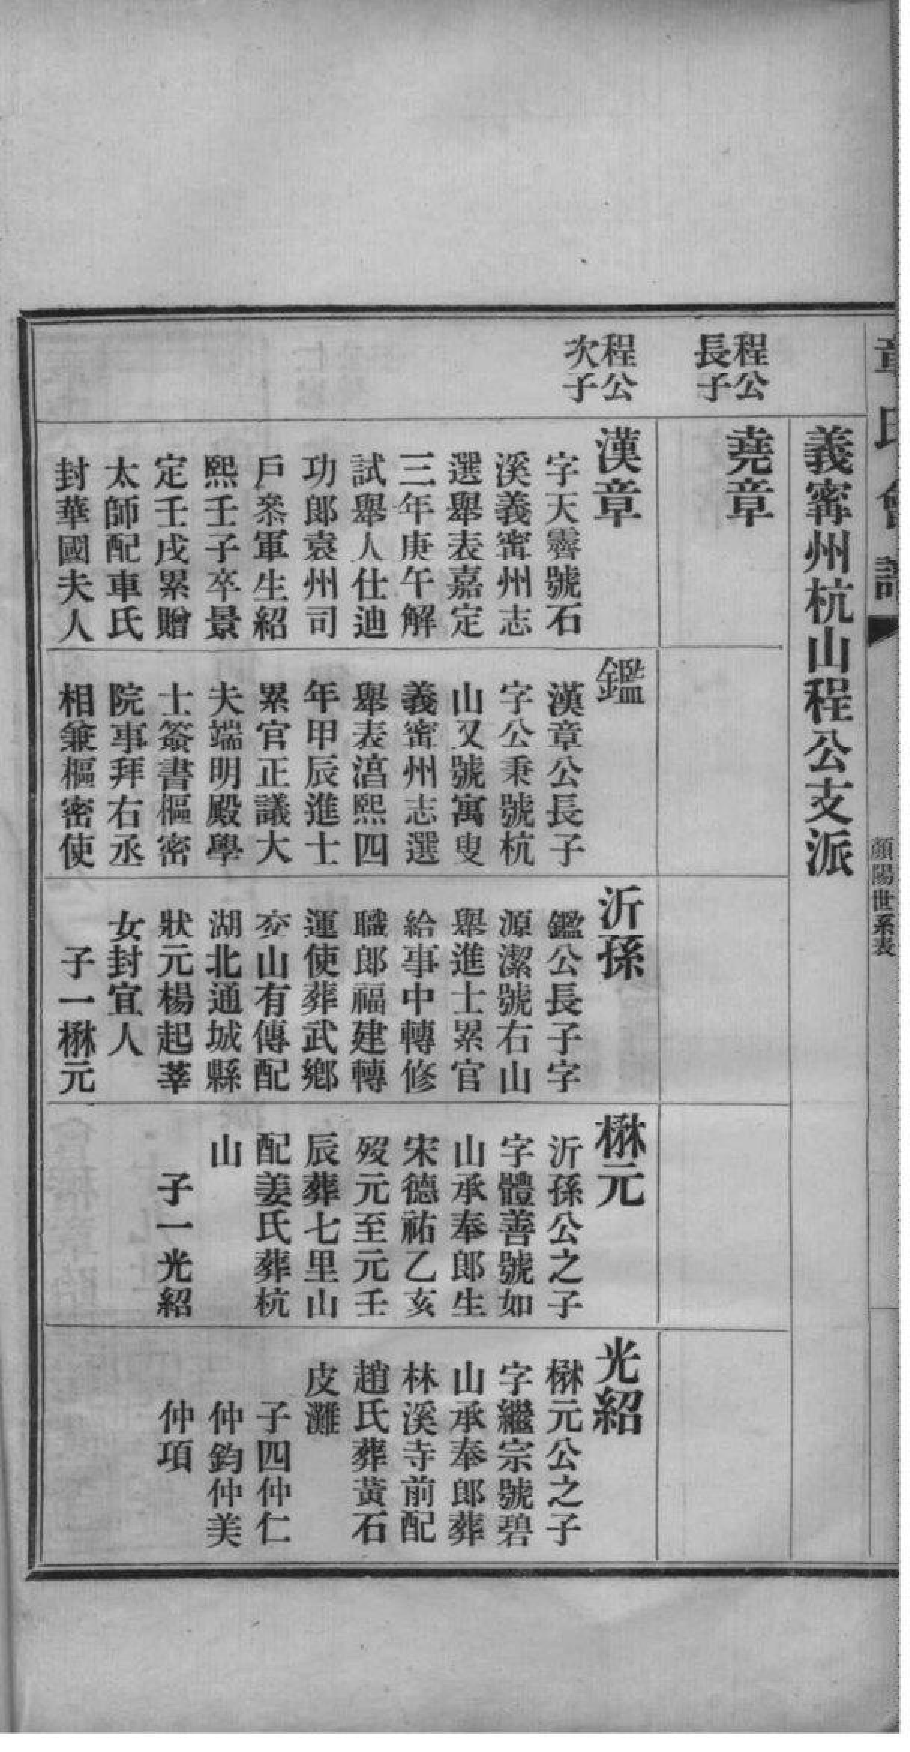 章氏會譜
顏陽世系表
義寗州杭山程公支派
程公
長子
堯章
程公
次子
漢章
字天霽號石
溪義寗州志
選舉表嘉定
三年庚午解
試舉人仕迪
功郎袁州司
戶叅軍生紹
熙壬子卒景
定壬戌累贈
太師配車氏
封華國夫人
鑑
漢章公長子
字公秉號杭
山又號寓叟
義寗州志選
舉表湻熙四
年甲辰進士
累官正議大
夫端明殿學
士簽書樞密
院事拜右丞
相兼樞密使
沂孫
鑑公長子字
源潔號右山
舉進士累官
給事中轉修
職郎福建轉
運使葬武鄉
夯山有傳配
湖北通城縣
狀元楊起莘
女封宜人
子一楙元
楙元
沂孫公之子
字體善號如
山承奉郎生
宋德祐乙亥
歿元至元壬
辰葬七里山
配姜氏葬杭
山
子一光紹
光紹
楙元公之子
字繼宗號碧
山承奉郎葬
林溪寺前配
趙氏葬黃石
皮灘
子四仲仁
仲鈞仲美
仲項